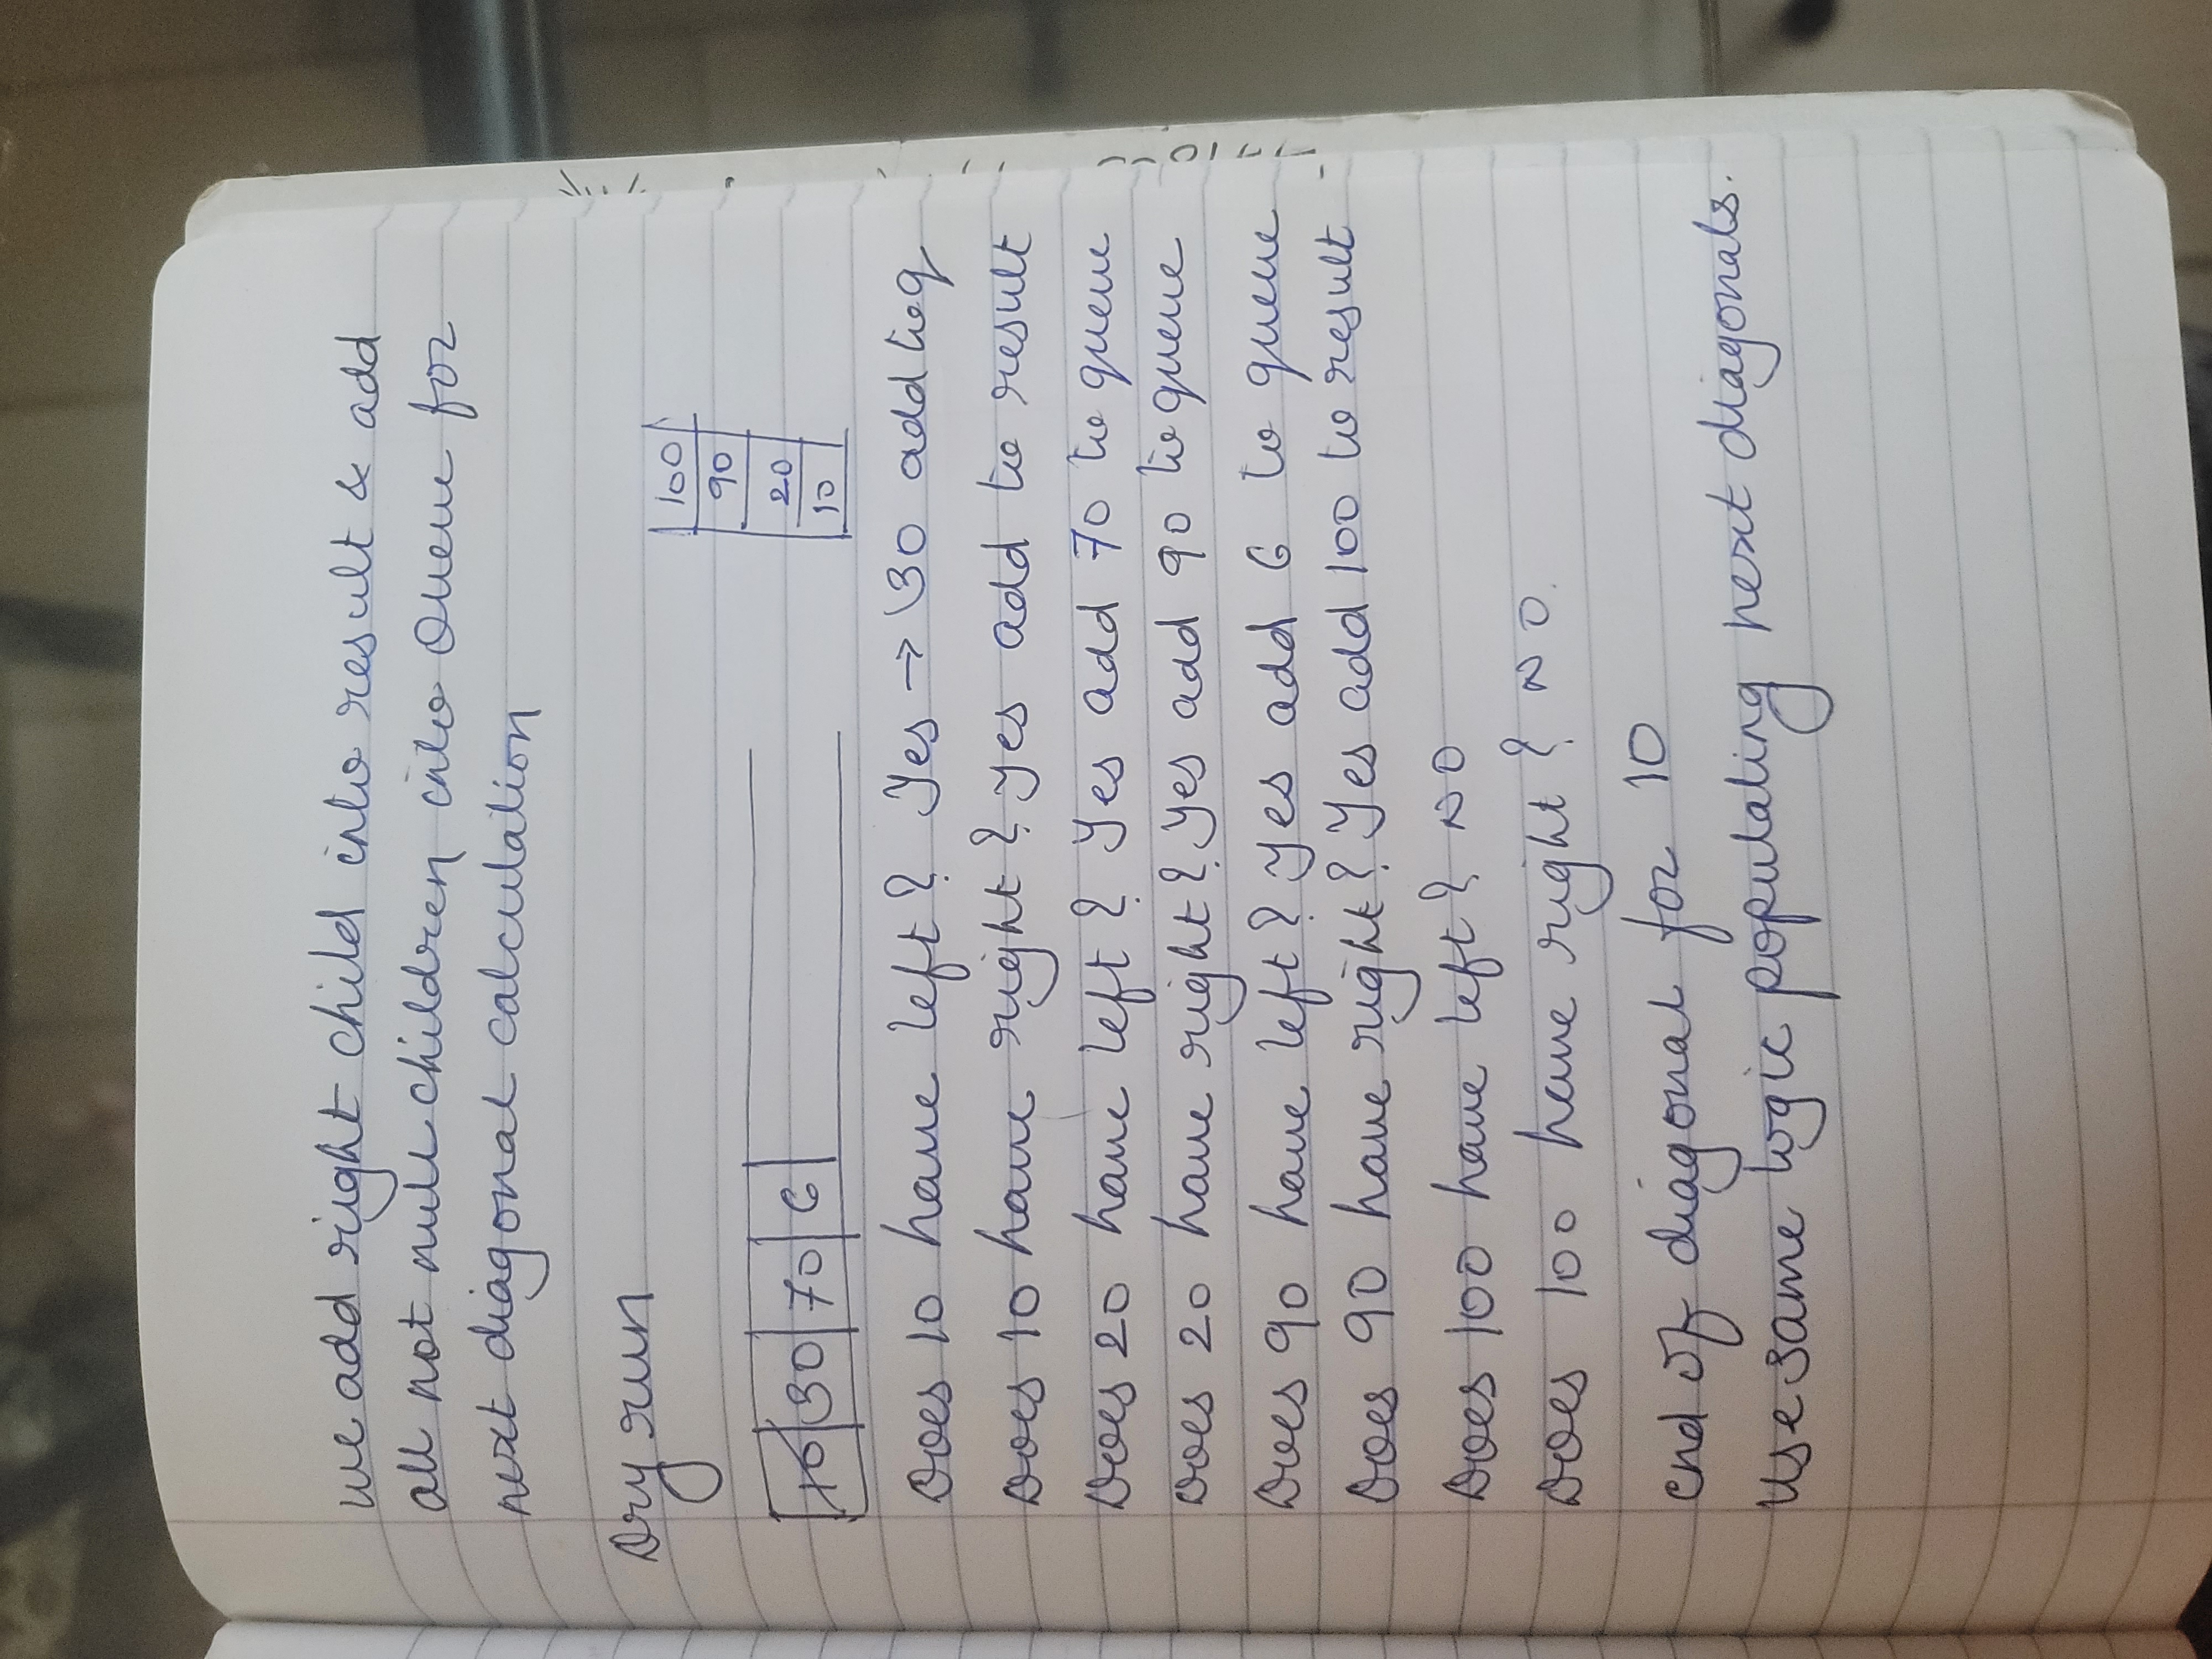 we add right child into result & add
all not null children into Queue for
next diagonal calculation
Dry run
100
90
20
10
10 30 70 6
Does 10 have left? Yes → 30 add to q
Does 10 have right? Yes add to result
Does 20 have left? Yes add 70 to queue
Does 20 have right? Yes add 90 to queue
Does 90 have left? Yes add 6 to queue
Does 90 have right? Yes add 100 to result
Does 100 have left? NO
Does 100 have right? NO.
end of diagonal for 10
Use same logic populating next diagonals.